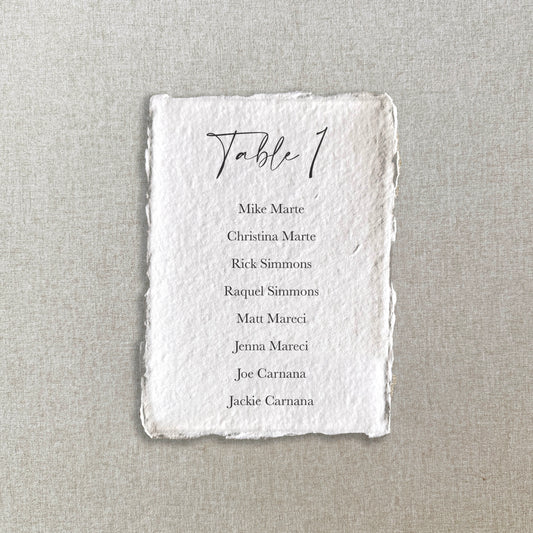 Table 1
Mike Marte
Christina Marte
Rick Simmons
Raquel Simmons
Matt Mareci
Jenna Mareci
Joe Carnana
Jackie Carnana